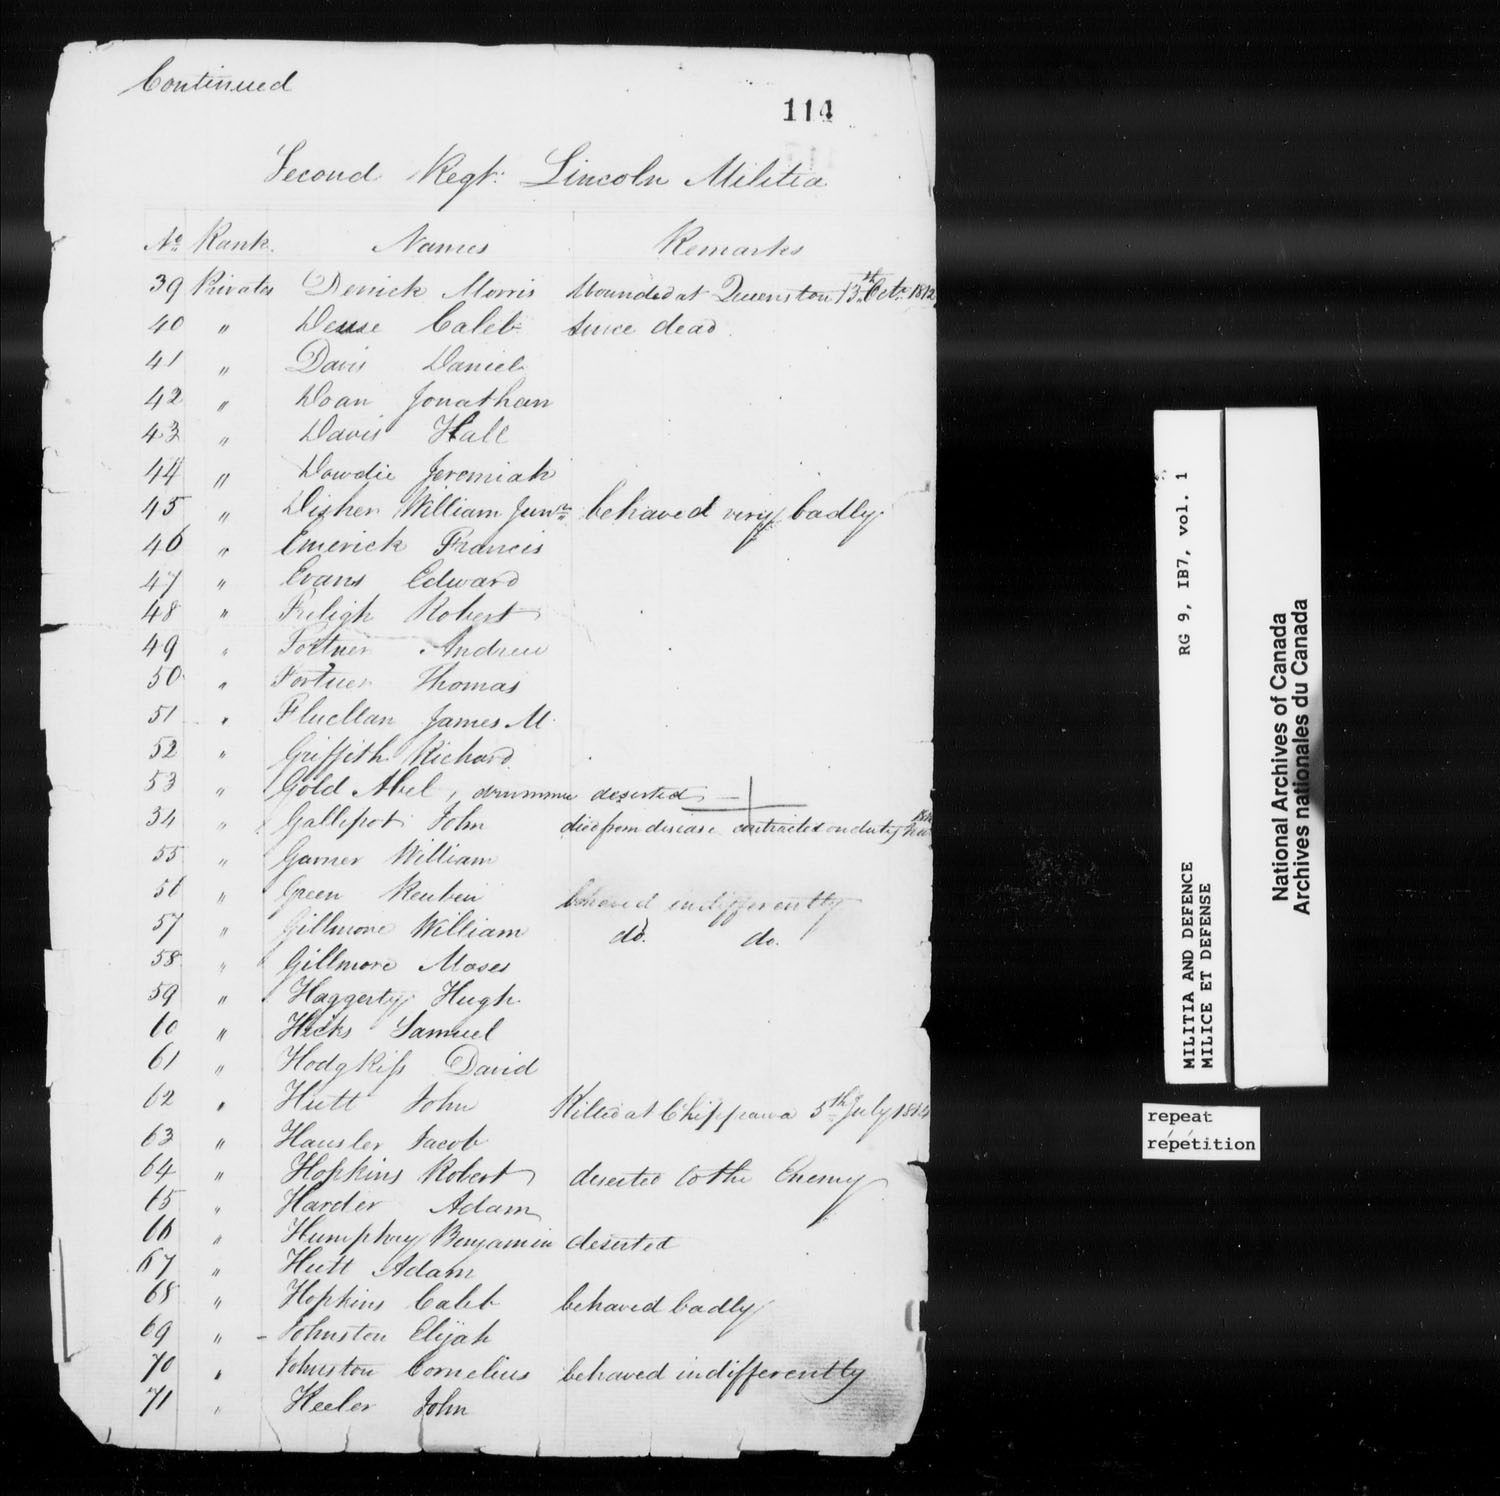 Continued
114
Second Regt. Lincoln Militia
No Rank Names Remarks
39 Privates Derrick Morris Wounded at Queenston 13th Octr 1812
40 " Dease Caleb since dead
41 " Davis Daniel
42 " Doan Jonathan
43 " Davis Hall
44 " Dowdie Jeremiah
45 " Disher William Junr behaved very badly
46 " Emerick Francis
47 " Evans Edward
48 " Freligh Robert
49 " Fortner Andrew
50 " Fortner Thomas
51 " James M.
52 " Griffith Richard
53 " Gold Abel, drummer deserted
54 " Gallipot John died from disease contracted on duty
55 " Garner William
56 " Green Reuben behaved indifferently
57 " Gillmore William do. do.
58 " Gillmore Moses
59 " Haggerty Hugh
60 " Hicks Samuel
61 " Hodgkiss David
62 " Hutt John Killed at Chippawa 5th July 1814
63 " Hausler Jacob
64 " Hopkins Robert deserted to the Enemy
65 " Harder Adam
66 " Humphrey Benjamin deserted
67 " Hutt Adam
68 " Hopkins Caleb behaved badly
69 " Johnston Elijah
70 " Johnston Cornelius behaved indifferently
71 " Keeler John
RG 9, IB7, vol. 1
MILITIA AND DEFENCE
MILICE ET DEFENSE
National Archives of Canada
Archives nationales du Canada
repeat
répétition